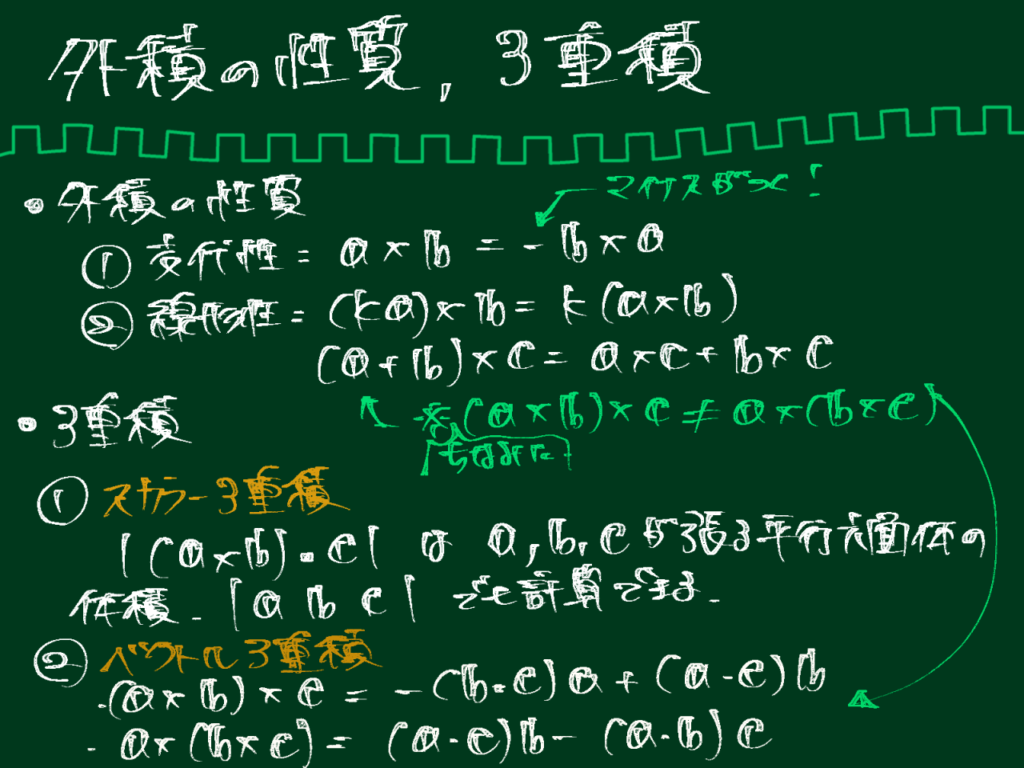 外積の性質, 3重積
・外積の性質
マイナスがつく!
① 交代性 = a × b = - b × a
② 線形性 = (ka) × b = k (a × b)
(a + b) × c = a × c + b × c
※ (a × b) × c ≠ a × (b × c)
ちなみに
・3重積
① スカラー3重積
|(a × b)・c| は a, b, c が張る平行六面体の
体積. |a b c| でも計算できる.
② ベクトル3重積
・(a × b) × c = -(b・c) a + (a・c) b
・a × (b × c) = (a・c) b - (a・b) c